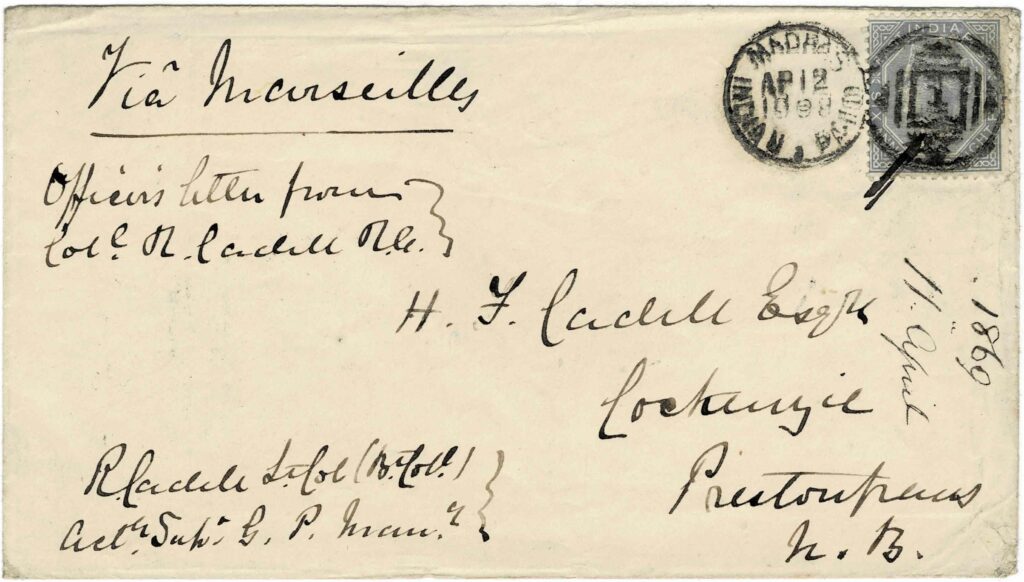 Via Marseilles
MADRAS
AP 12
INDIA PAID
INDIA
1
Officer's letter from
Col.l R. Cadell R.A.
H. F. Cadell Esqre
Cockenzie
Prestonpans
N. B.
R. Cadell Lt. Col (Bt. Coll.)
Actg. Supt. G. P. Man.y
1869
11. April